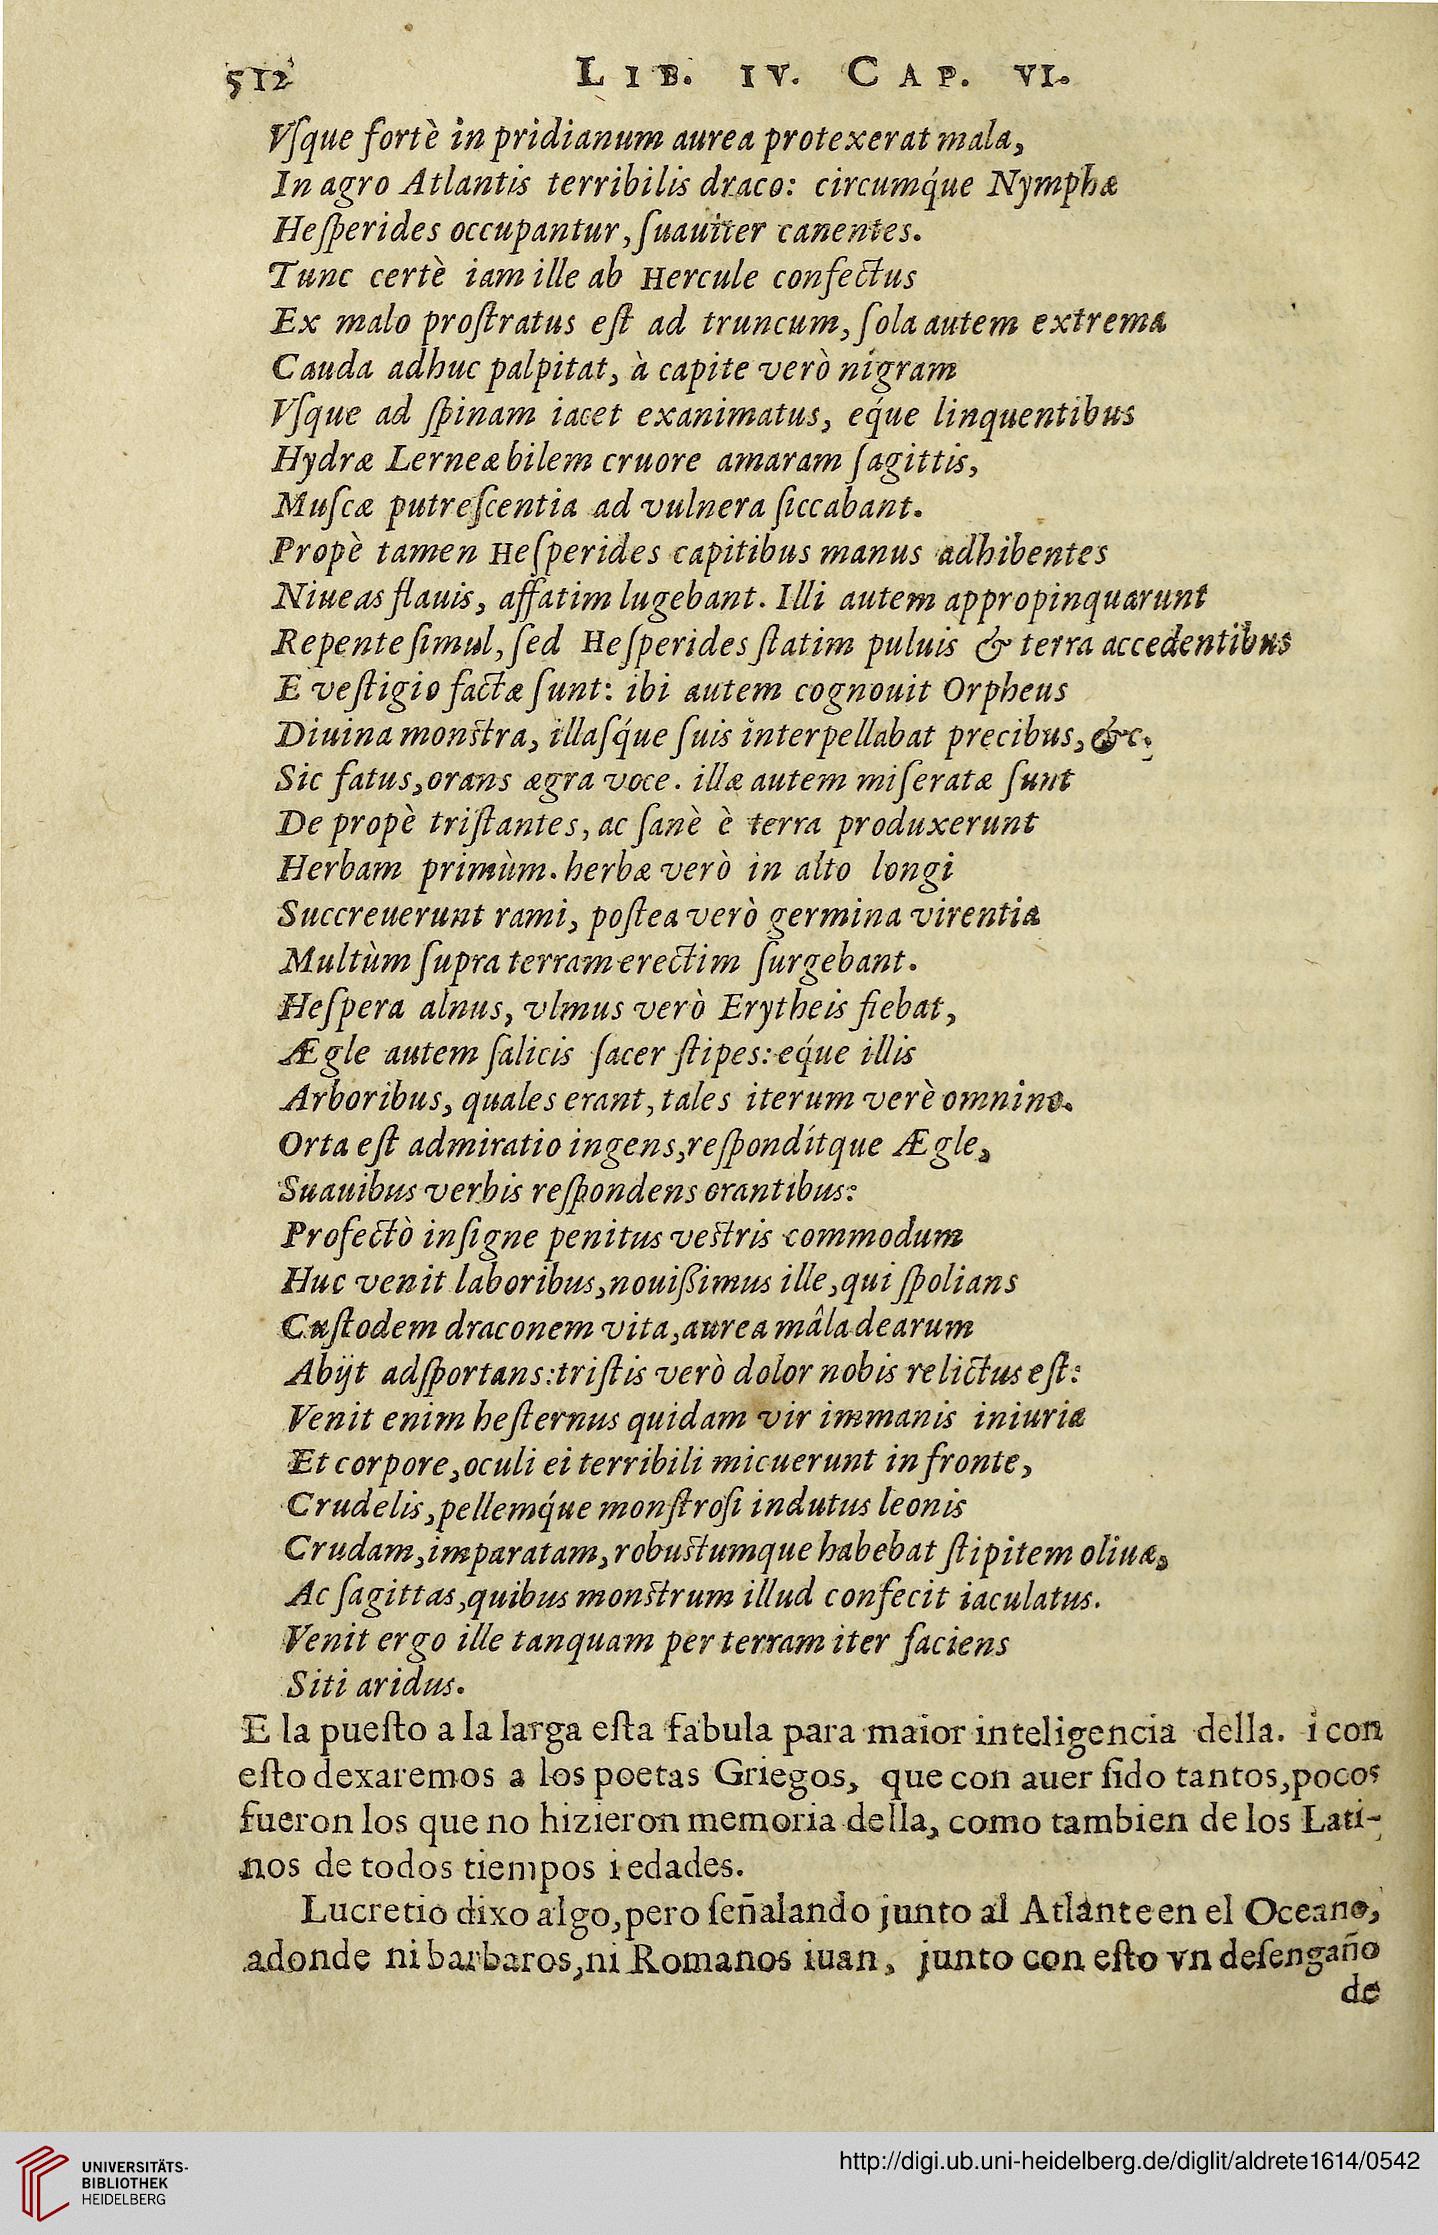 512 LIB. IV. CAP. VI.
Vſque fortè in pridianum aurea protexerat mala,
In agro Atlantis terribilis draco: circumq́ue Nymphæ
Heſperides occupantur, ſuauiter canentes.
Tunc certè iam ille ab Hercule confectus
Ex malo proſtratus eſt ad truncum, ſola autem extrema
Cauda adhuc palpitat, à capite verò nigram
Vſque ad ſpinam iacet exanimatus, eq́ue linquentibus
Hydræ Lerneæ bilem cruore amaram ſagittis,
Muſcæ putreſcentia ad vulnera ſiccabant.
Propè tamen Heſperides capitibus manus adhibentes
Niueas flauis, affatim lugebant. Illi autem appropinquarunt
Repente ſimul, ſed Heſperides ſtatim puluis & terra accedentibus
E veſtigio factæ ſunt: ibi autem cognouit Orpheus
Diuina monſtra, illaſq́ue ſuis interpellabat precibus, &c.
Sic fatus, orans ægra voce. illæ autem miſeratæ ſunt
De propè triſtantes, ac ſanè è terra produxerunt
Herbam primùm. herbæ verò in alto longi
Succreuerunt rami, poſtea verò germina virentia
Multùm ſupra terram erectim ſurgebant.
Heſpera alnus, vlmus verò Erytheis fiebat,
Ægle autem ſalicis ſacer ſtipes: eq́ue illis
Arboribus, quales erant, tales iterum verè omnino.
Orta eſt admiratio ingens, reſpondítque Ægle,
Suauibus verbis reſpondens orantibus:
Profectò inſigne penitus veſtris commodum
Huc venit laboribus, nouißimus ille, qui ſpolians
Cuſtodem draconem vita, aurea mâla dearum
Abijt adſportans: triſtis verò dolor nobis relictus eſt:
Venit enim heſternus quidam vir immanis iniuria
Et corpore, oculi ei terribili micuerunt in fronte,
Crudelis, pellemq́ue monſtroſi indutus leonis
Crudam, imparatam, robuſtumque habebat ſtipitem oliuæ,
Ac ſagittas, quibus monſtrum illud confecit iaculatus.
Venit ergo ille tanquam per terram iter faciens
Siti aridus.
E la pueſto a la larga eſta fabula para maior inteligencia della. i con
eſto dexaremos a los poetas Griegos, que con auer ſido tantos, pocos
fueron los que no hizieron memoria della, como tambien de los Lati-
nos de todos tiempos i edades.
Lucretio dixo algo, pero ſeñalando junto al Atlante en el Oceano,
adonde ni barbaros, ni Romanos iuan, junto con eſto vn deſengaño
de
UNIVERSITÄTS-
BIBLIOTHEK
HEIDELBERG
http://digi.ub.uni-heidelberg.de/diglit/aldrete1614/0542